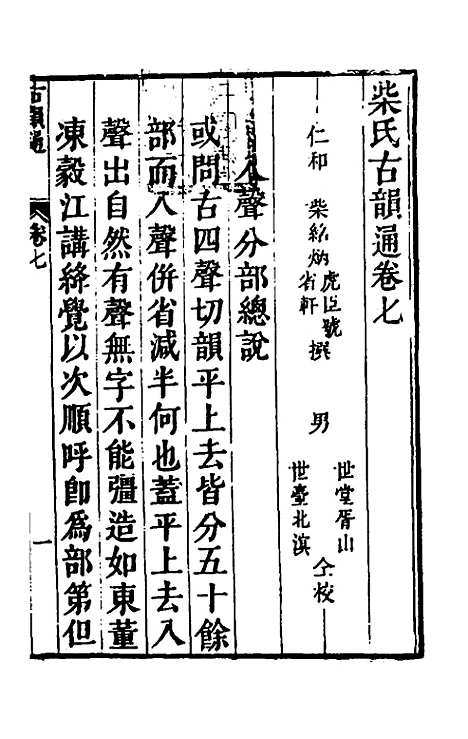 柴氏古韻通卷七
仁和 柴紹炳 虎臣號省軒 撰 男 世堂胥山 世臺北溟 仝校
入聲分部總說
或問古四聲切韻平上去皆分五十餘
部而入聲併省減半何也蓋平上去入
聲出自然有聲無字不能彊造如東董
凍縠江講絳覺以次順呼卽爲部第但
古韻通 卷七 一